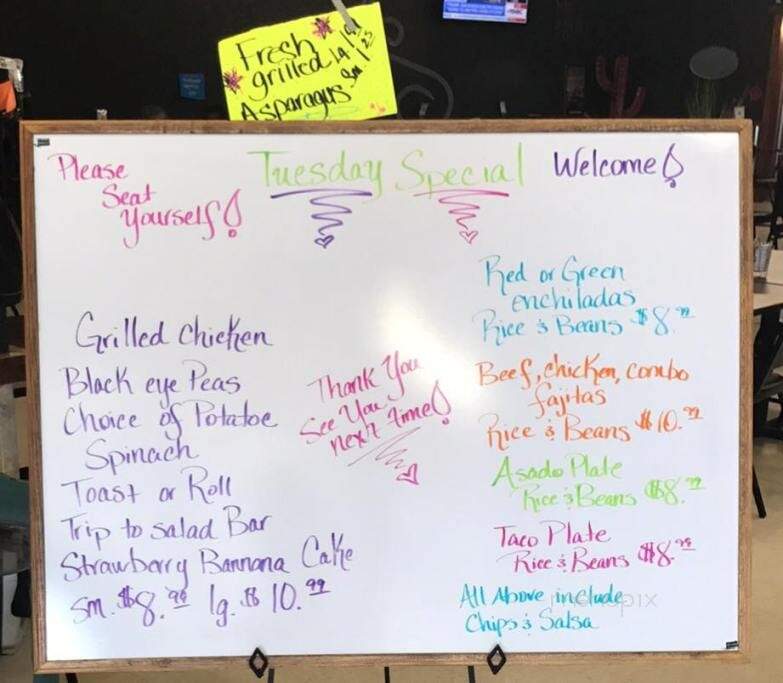 Fresh
grilled lg
Asparagus sm 1.25
Please
Seat
Yourself!
Tuesday Special
Welcome!
Grilled chicken
Black eye Peas
Choice of Potatoe
Spinach
Toast or Roll
Trip to salad Bar
Strawberry Bannana Cake
sm. $8.99 lg. $10.99
Thank You
See You
next time!
Red or Green
enchiladas
Rice & Beans $8.99
Beef, chicken, combo
fajitas
Rice & Beans $10.99
Asado Plate
Rice & Beans $8.99
Taco Plate
Rice & Beans $8.99
All Above include
Chips & Salsa